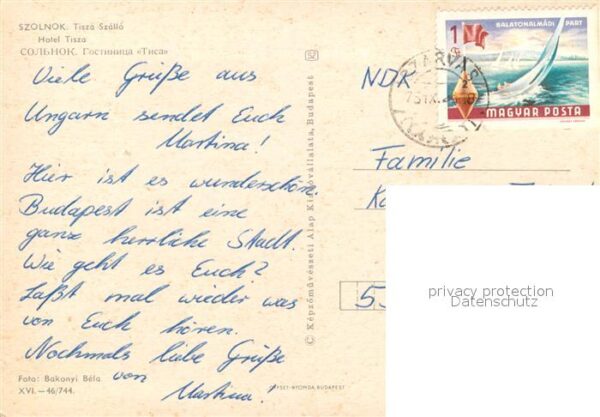 SZOLNOK. Tisza Szálló
Hotel Tisza
СОЛЬНОК. Гостиница «Тиса»
Viele Grüße aus
Ungarn sendet Euch
Martina!
Hier ist es wunderschön.
Budapest ist eine
ganz herrliche Stadt.
Wie geht es Euch?
Laßt mal wieder was
von Euch hören.
Nochmals liebe Grüße
von
Martina.
Foto: Bakonyi Béla
XVI.—46/744.
© Képzőművészeti Alap Kiadóvállalata, Budapest
OFFSET-NYOMDA, BUDAPEST
1 Ft
BALATONALMÁDI PART
MAGYAR POSTA
NDR
Familie
55
privacy protection
Datenschutz